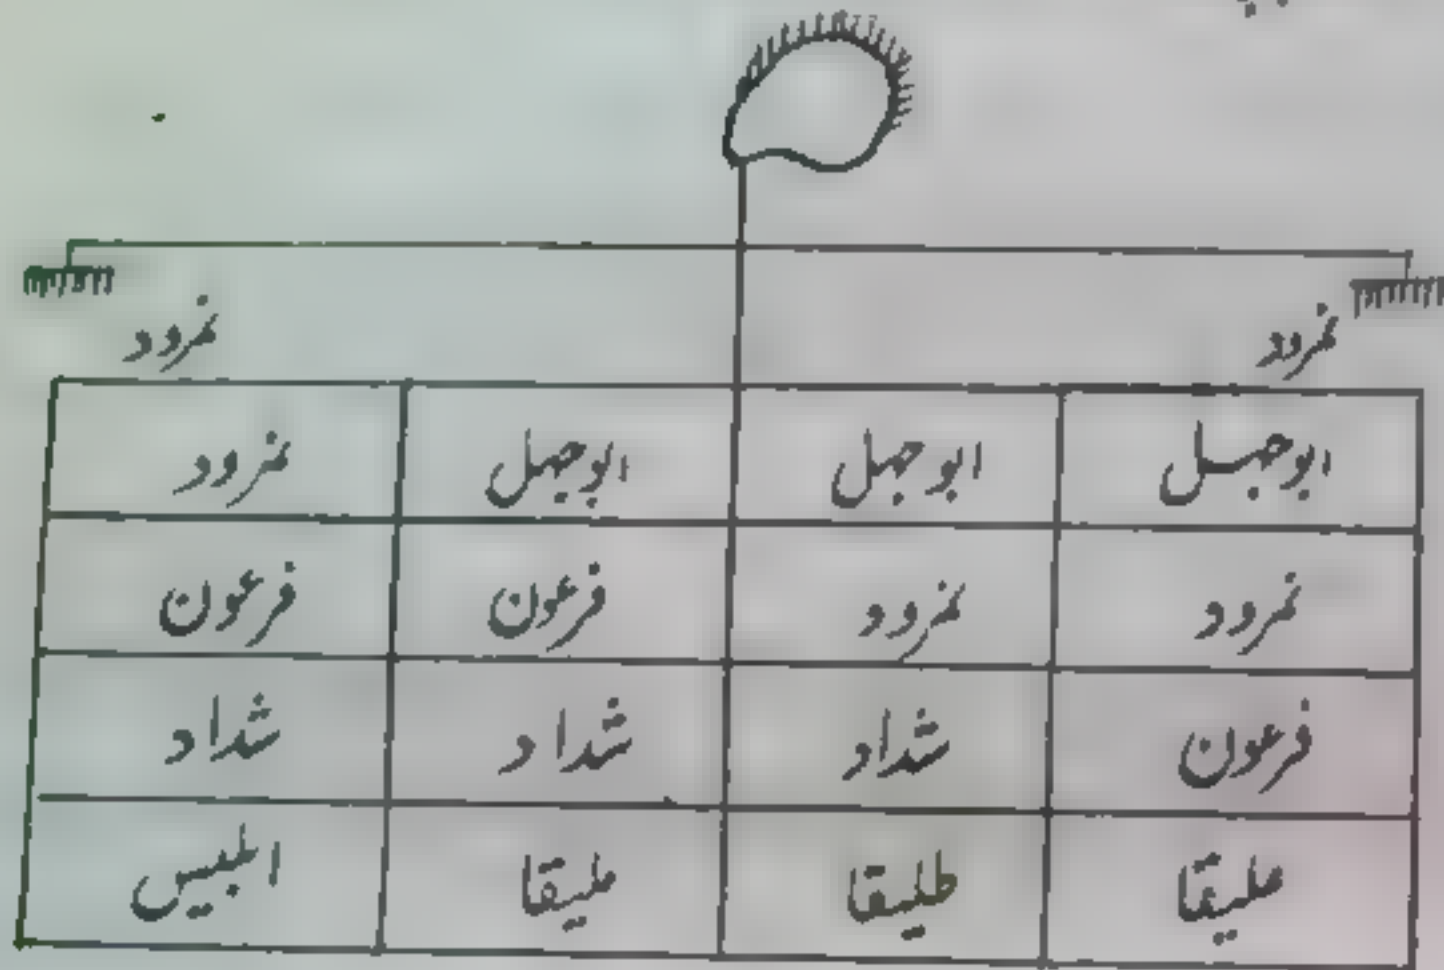 نمرود نمرود
ابوجہل ابوجہل ابوجہل نمرود
نمرود نمرود فرعون فرعون
فرعون شداد شداد شداد
طلیقا ملیقا ابلیس